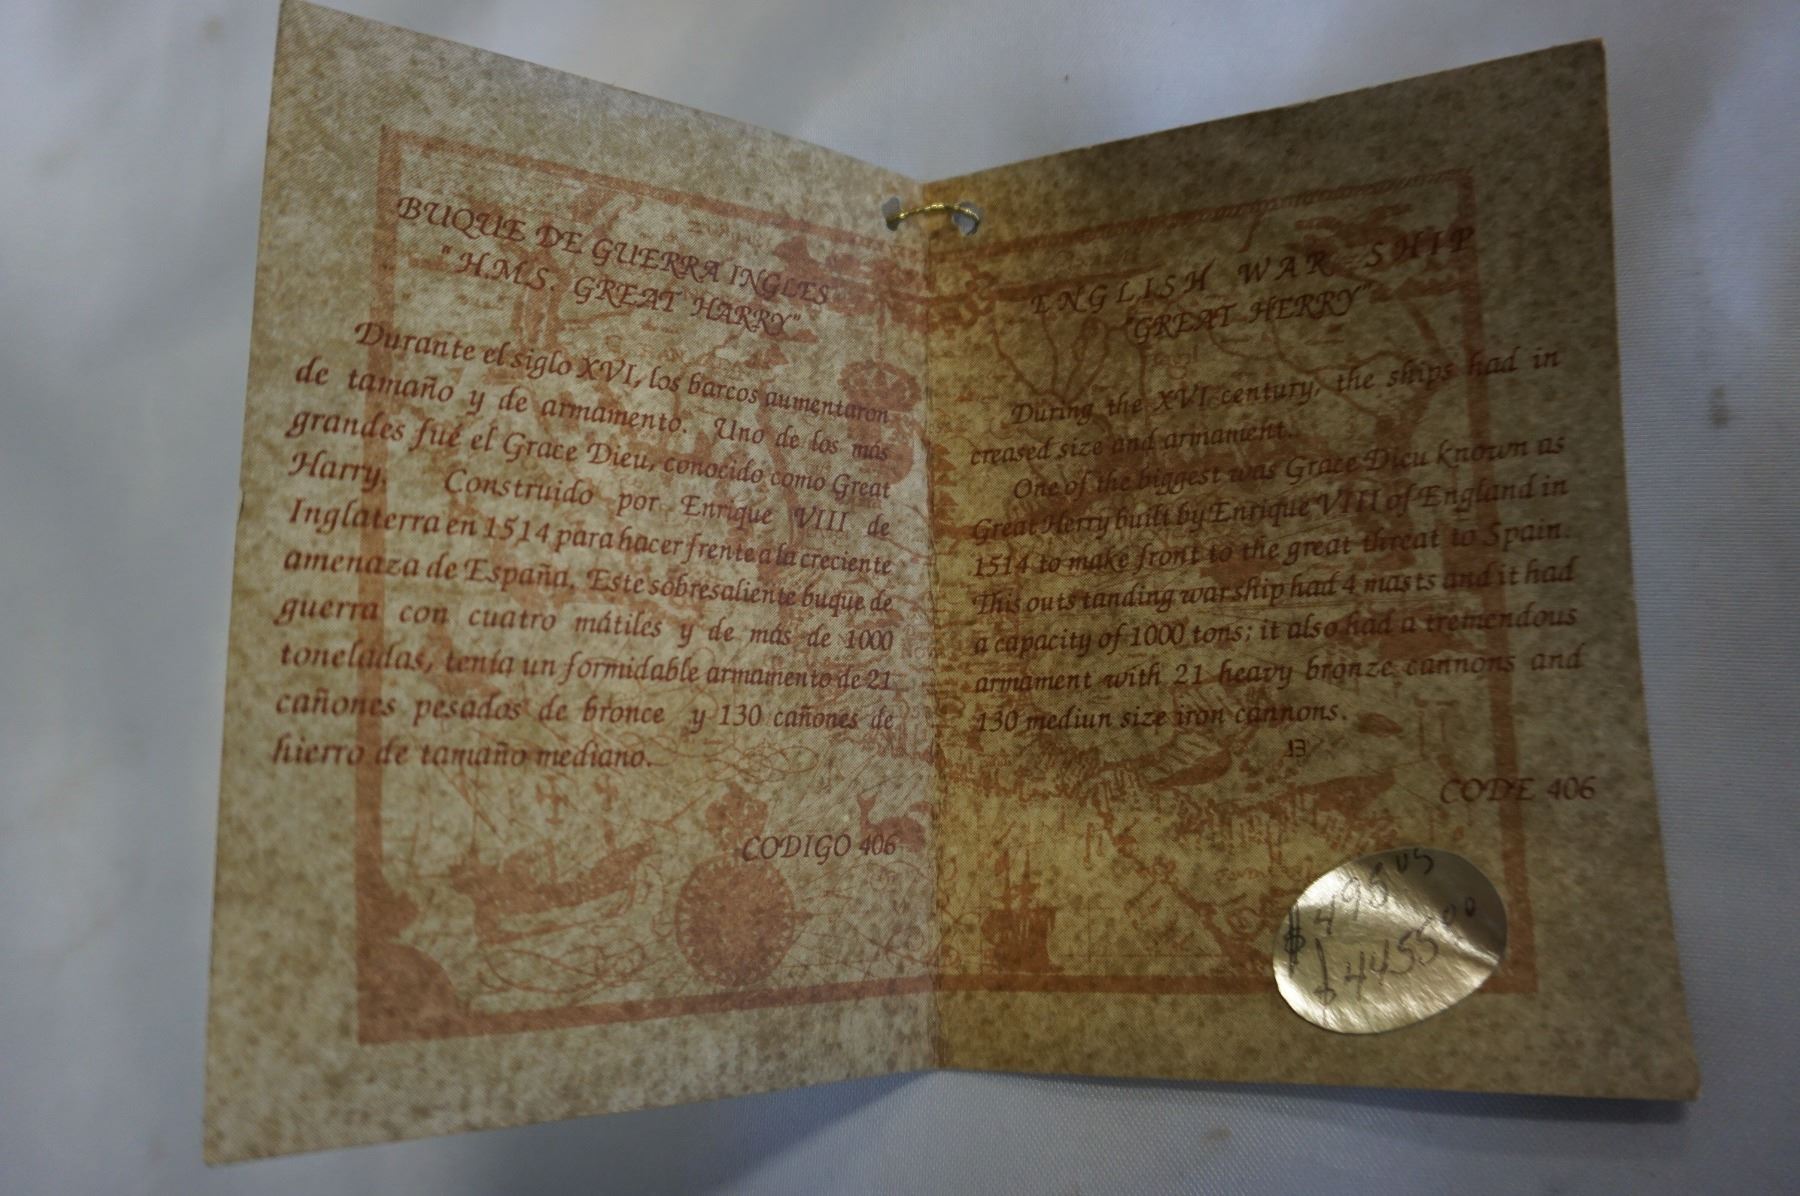 BUQUE DE GUERRA INGLES
"H.M.S. GREAT HARRY"
Durante el siglo XVI, los barcos aumentaron
de tamaño y de armamento. Uno de los mas
grandes fué el Grace Dieu, conocido como Great
Harry. Construido por Enrique VIII de
Inglaterra en 1514 para hacer frente a la creciente
amenaza de España. Este sobresaliente buque de
guerra con cuatro mátiles y de más de 1000
toneladas, tenía un formidable armamento de 21
cañones pesados de bronce y 130 cañones de
hierro de tamaño mediano.
CODIGO 406
ENGLISH WAR SHIP
"GREAT HERRY"
During the XVI century, the ships had in
creased size and armament.
One of the biggest was Grace Dieu known as
Great Herry built by Enrique VIII of England in
1514 to make front to the great threat to Spain.
This outs tanding war ship had 4 masts and it had
a capacity of 1000 tons; it also had a tremendous
armament with 21 heavy bronze cannons and
130 mediun size iron cannons.
13
CODE 406
$495 US
$4455 00